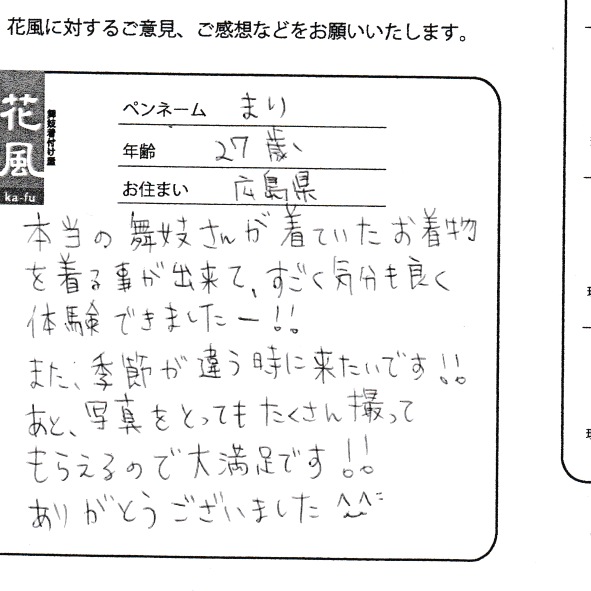 花風に対するご意見、ご感想などをお願いいたします。
花風
舞妓着付け屋
ka-fu
ペンネーム まり
年齢 27歳
お住まい 広島県
本当の舞妓さんが着ていたお着物
を着る事が出来て、すごく気分も良く
体験できましたー!!
また、季節が違う時に来たいです!!
あと、写真をとってもたくさん撮って
もらえるので大満足です!!
ありがとうございました^^